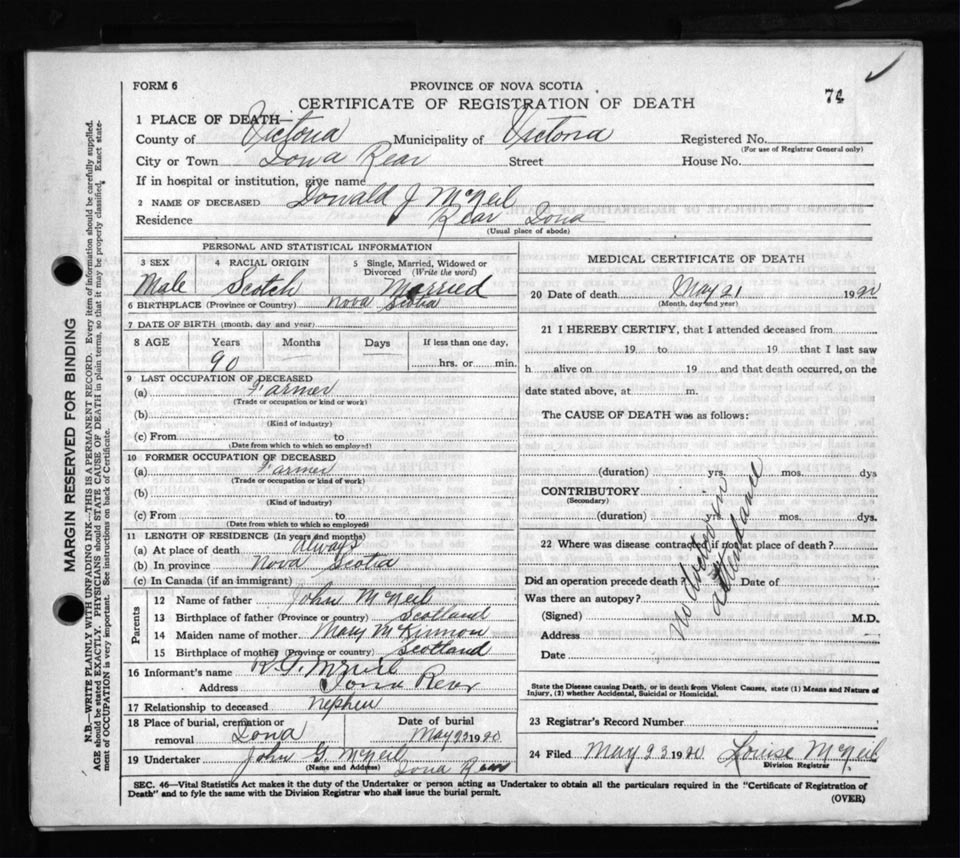 FORM 6
PROVINCE OF NOVA SCOTIA
CERTIFICATE OF REGISTRATION OF DEATH
74
1 PLACE OF DEATH—
County of Victoria Municipality of Victoria Registered No.
(For use of Registrar General only)
City or Town Iona Rear Street House No.
If in hospital or institution, give name
2 NAME OF DECEASED Donald J McNeil
Residence Rear Iona
(Usual place of abode)
PERSONAL AND STATISTICAL INFORMATION
3 SEX 4 RACIAL ORIGIN 5 Single, Married, Widowed or Divorced (Write the word)
Male Scotch Married
6 BIRTHPLACE (Province or Country) Nova Scotia
7 DATE OF BIRTH (month, day and year)
8 AGE Years Months Days If less than one day,
90 hrs. or min.
9 LAST OCCUPATION OF DECEASED
(a) Farmer
(Trade or occupation or kind or work)
(b)
(Kind of industry)
(c) From to
(Date from which to which so employed)
10 FORMER OCCUPATION OF DECEASED
(a) Farmer
(Trade or occupation or kind of work)
(b)
(Kind of industry)
(c) From to
(Date from which to which so employed)
11 LENGTH OF RESIDENCE (In years and months)
(a) At place of death always
(b) In province Nova Scotia
(c) In Canada (if an immigrant)
Parents
12 Name of father John McNeil
13 Birthplace of father (Province or country) Scotland
14 Maiden name of mother Mary McKinnon
15 Birthplace of mother (Province or country) Scotland
16 Informant's name McNeil
Address Iona Rear
17 Relationship to deceased nephew
18 Place of burial, cremation or removal Iona Date of burial May 23 1920
19 Undertaker John G. McNeil
(Name and Address) Iona Rear
MEDICAL CERTIFICATE OF DEATH
20 Date of death May 21 1920
(Month, day and year)
21 I HEREBY CERTIFY, that I attended deceased from
19 to 19 that I last saw
h alive on 19 and that death occurred, on the
date stated above, at m.
The CAUSE OF DEATH was as follows:
(duration) yrs. mos. dys
CONTRIBUTORY
(Secondary)
(duration) mos. dys.
No doctor in attendance
22 Where was disease contracted if not at place of death?
Did an operation precede death? Date of
Was there an autopsy?
(Signed) M.D.
Address
Date
State the Disease causing Death, or in death from Violent Causes, state (1) Means and Nature of
Injury, (2) whether Accidental, Suicidal or Homicidal.
23 Registrar's Record Number
24 Filed May 23 1920 Louise McNeil
Division Registrar
SEC. 46—Vital Statistics Act makes it the duty of the Undertaker or person acting as Undertaker to obtain all the particulars required in the "Certificate of Registration of
Death" and to fyle the same with the Division Registrar who shall issue the burial permit.
(OVER)
MARGIN RESERVED FOR BINDING
N.B.—WRITE PLAINLY WITH UNFADING INK—THIS IS A PERMANENT RECORD. Every item of information should be carefully supplied.
AGE should be stated EXACTLY. PHYSICIANS should STATE CAUSE OF DEATH in plain terms, so that it may be properly classified. Exact state-
ment of OCCUPATION is very important. See instructions on back of Certificate.